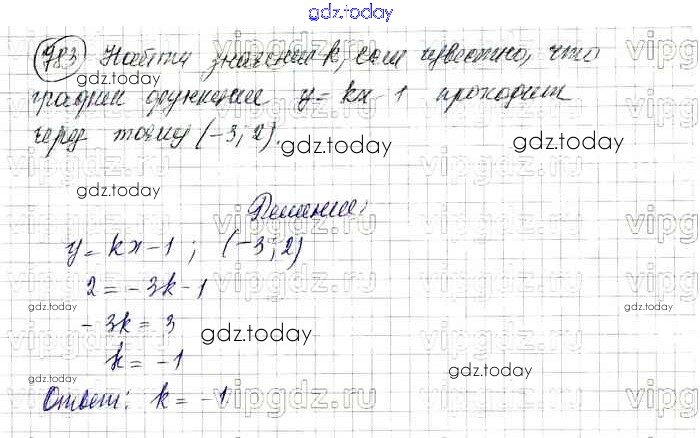 gdz.today
783 Найти значения k, если известно, что
график функции y = kx - 1 проходит
через точку (-3; 2).
gdz.today
gdz.today
gdz.today
gdz.today
Решение:
y = kx - 1 ; (-3; 2)
2 = -3k - 1
-3k = 3
k = -1
Ответ: k = -1
gdz.today
gdz.today
gdz.today
gdz.today
gdz.today
gdz.today
vipgdz.today